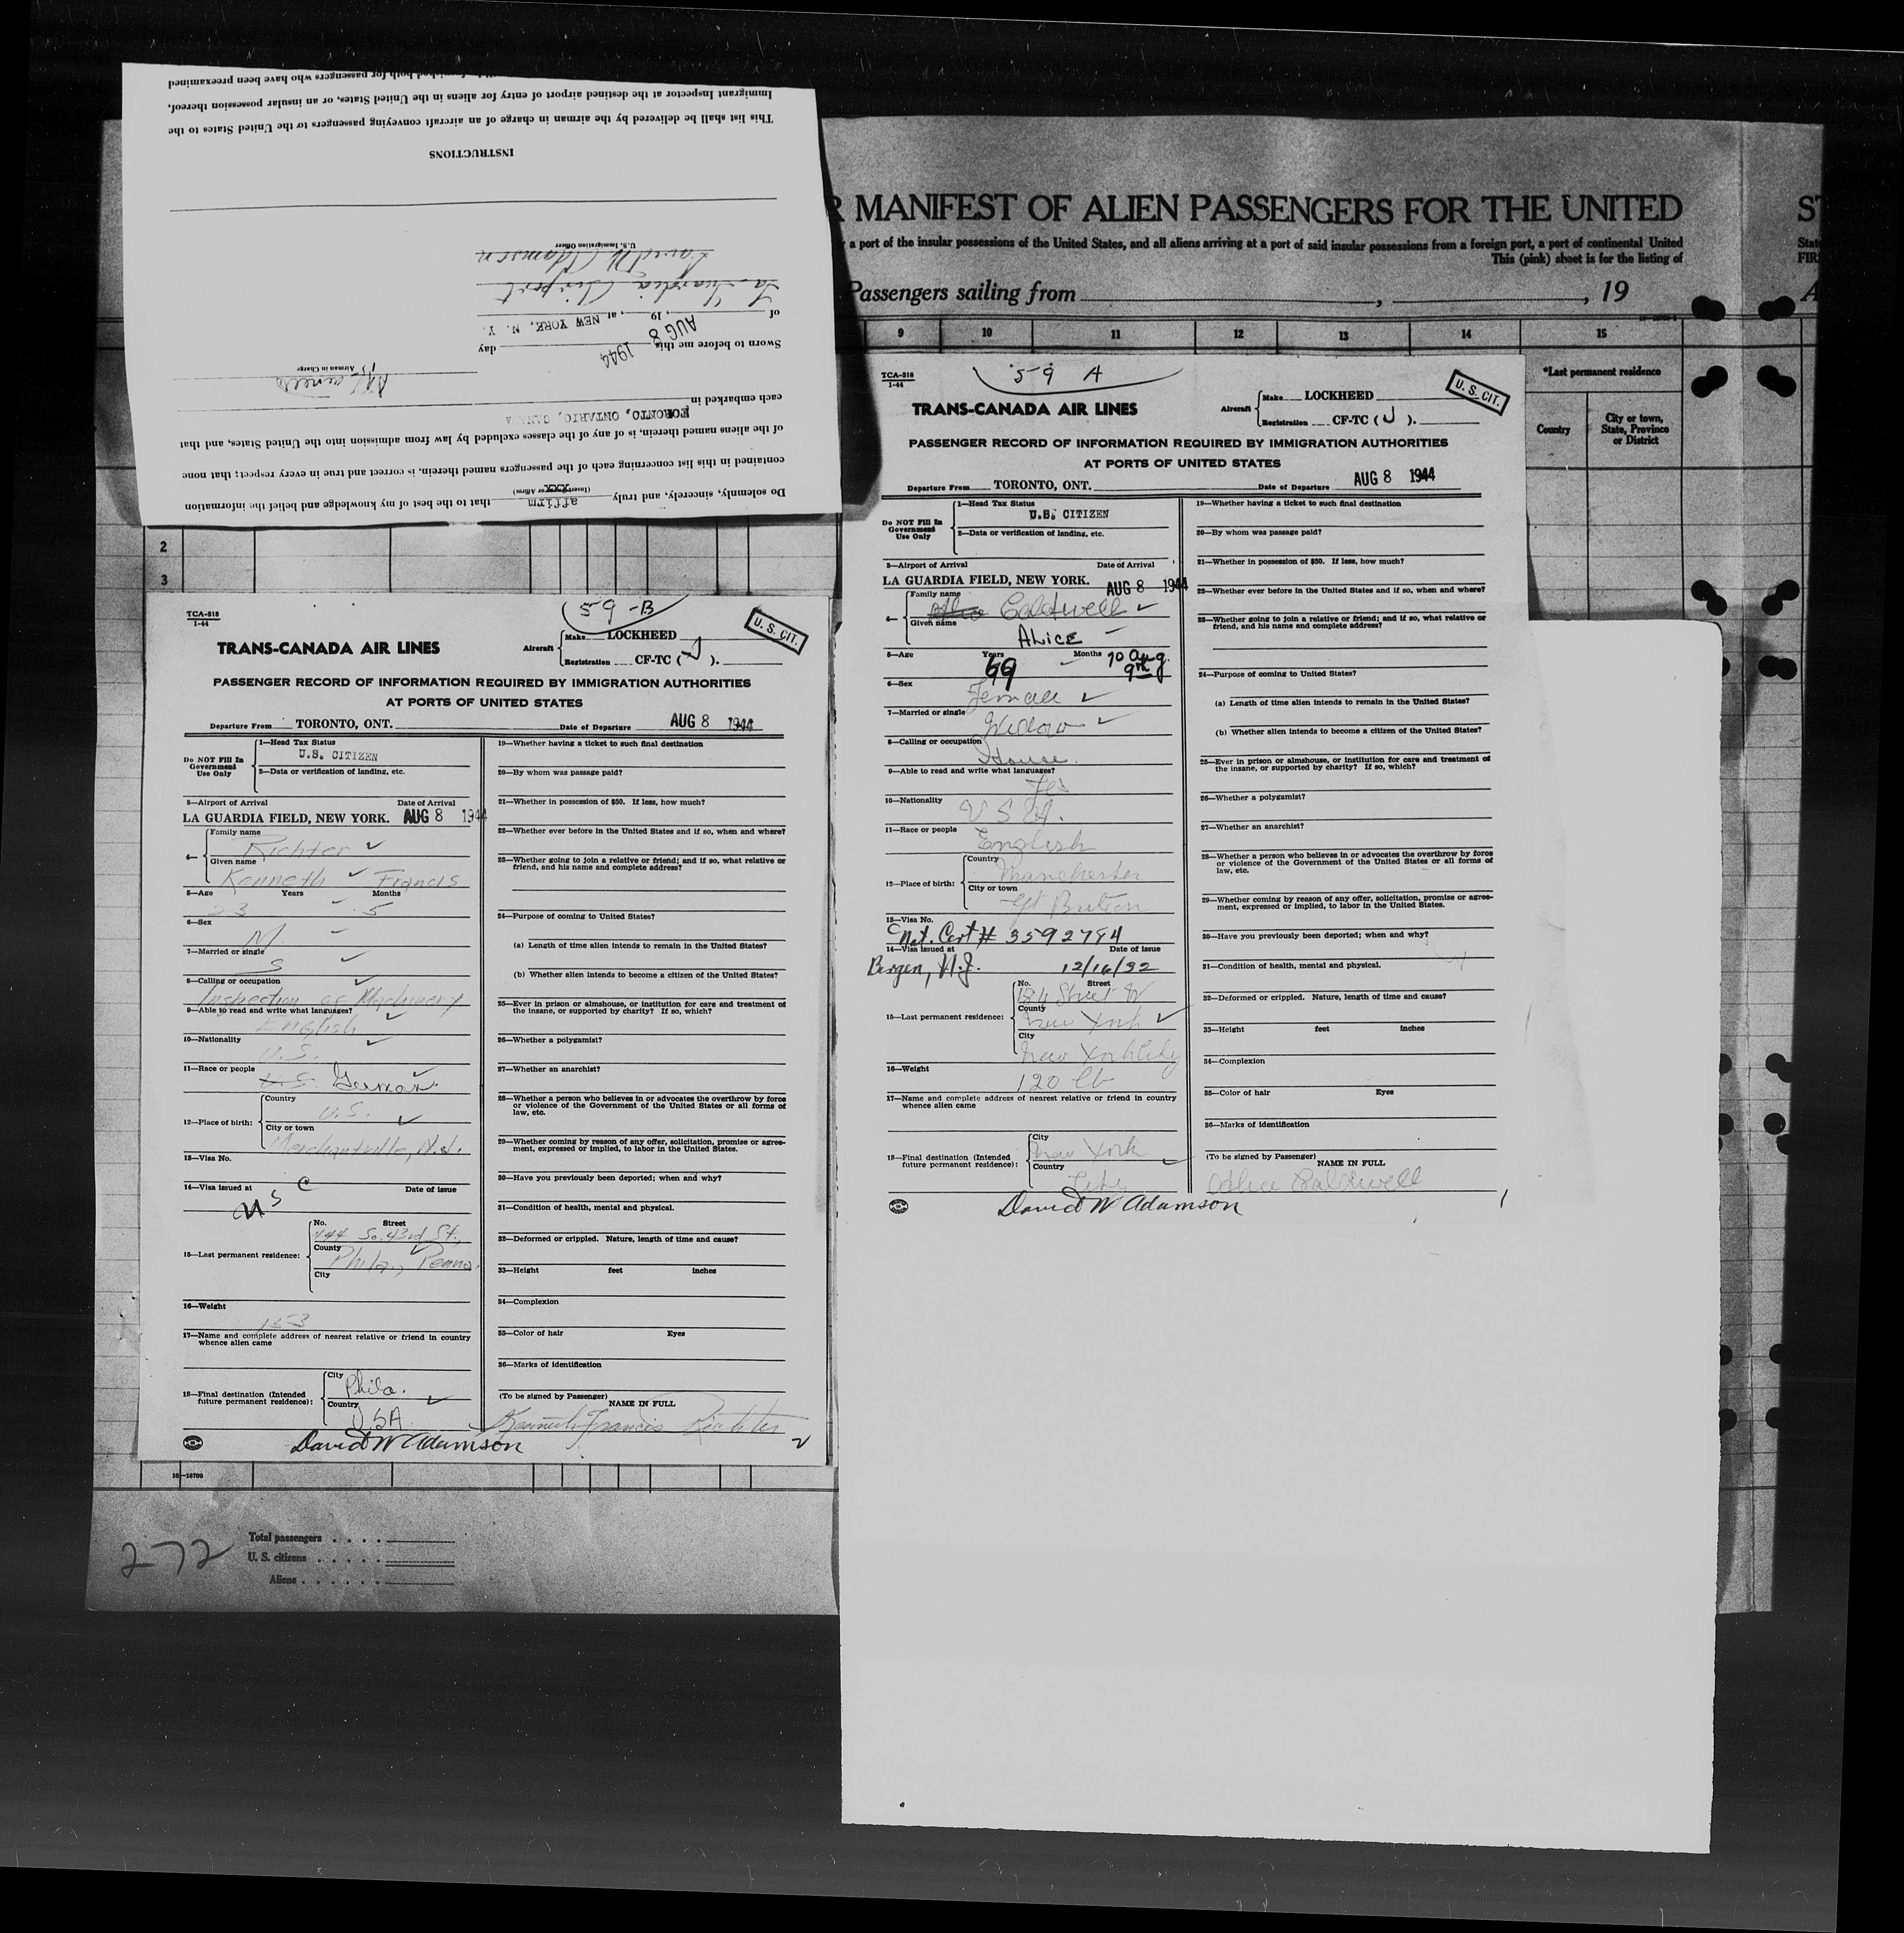 Immigrant Inspector at the destined airport of entry for aliens in the United States, or an insular possession thereof,
This list shall be delivered by the airman in charge of an aircraft conveying passengers to the United States to the
INSTRUCTIONS
U.S. Immigration Officer
David W Adamson
La Guardia Airport
of , 19 , at NEW YORK, N. Y.
AUG 8 1944
Sworn to before me this day
Airman in Charge
each embarked in TORONTO, ONTARIO, CANADA
of the aliens named therein, is of any of the classes excluded by law from admission into the United States, and that
contained in this list concerning each of the passengers named therein, is correct and true in every respect; that none
Do solemnly, sincerely, and truly affirm that to the best of my knowledge and belief the information
R MANIFEST OF ALIEN PASSENGERS FOR THE UNITED
ST
a port of the insular possessions of the United States, and all aliens arriving at a port of said insular possessions from a foreign port, a port of continental United
This (pink) sheet is for the listing of
Passengers sailing from , , 19
9 10 11 12 13 14 15
*Last permanent residence
Country
City or town, State, Province or District
2
3
TCA-518
1-44
59-B
U. S. CIT.
TRANS-CANADA AIR LINES
Aircraft
Make LOCKHEED
Registration CF-TC (J).
PASSENGER RECORD OF INFORMATION REQUIRED BY IMMIGRATION AUTHORITIES
AT PORTS OF UNITED STATES
Departure From TORONTO, ONT. Date of Departure AUG 8 1944
Do NOT Fill In Government Use Only
1—Head Tax Status
U.S. CITIZEN
2—Data or verification of landing, etc.
3—Airport of Arrival Date of Arrival
LA GUARDIA FIELD, NEW YORK. AUG 8 1944
4—
Family name
Richter
Given name
Kenneth Francis
5—Age Years Months
23 5
6—Sex
M
7—Married or single
S
8—Calling or occupation
Inspection of Machinery
9—Able to read and write what languages?
English
10—Nationality
U.S.
11—Race or people
U.S. German
12—Place of birth:
Country
U.S.
City or town
Merchantville, N.J.
13—Visa No.
14—Visa issued at Date of issue
U S C
15—Last permanent residence:
No. Street
444 So. 43rd St.,
County
Phila., Penna.
City
16—Weight
153
17—Name and complete address of nearest relative or friend in country whence alien came
18—Final destination (Intended future permanent residence):
City
Phila.
Country
USA
David W Adamson
19—Whether having a ticket to such final destination
20—By whom was passage paid?
21—Whether in possession of $50. If less, how much?
22—Whether ever before in the United States and if so, when and where?
23—Whether going to join a relative or friend; and if so, what relative or friend, and his name and complete address?
24—Purpose of coming to United States?
(a) Length of time alien intends to remain in the United States?
(b) Whether alien intends to become a citizen of the United States?
25—Ever in prison or almshouse, or institution for care and treatment of the insane, or supported by charity? If so, which?
26—Whether a polygamist?
27—Whether an anarchist?
28—Whether a person who believes in or advocates the overthrow by force or violence of the Government of the United States or all forms of law, etc.
29—Whether coming by reason of any offer, solicitation, promise or agreement, expressed or implied, to labor in the United States.
30—Have you previously been deported; when and why?
31—Condition of health, mental and physical.
32—Deformed or crippled. Nature, length of time and cause?
33—Height feet inches
34—Complexion
35—Color of hair Eyes
36—Marks of identification
(To be signed by Passenger)
NAME IN FULL
Kenneth Francis Richter
2
16—18709
272
Total passengers
U. S. citizens
Aliens
TCA-518
1-44
59 A
U. S. CIT.
TRANS-CANADA AIR LINES
Aircraft
Make LOCKHEED
Registration CF-TC (J).
PASSENGER RECORD OF INFORMATION REQUIRED BY IMMIGRATION AUTHORITIES
AT PORTS OF UNITED STATES
Departure From TORONTO, ONT. Date of Departure AUG 8 1944
Do NOT Fill In Government Use Only
1—Head Tax Status
U.S. CITIZEN
2—Data or verification of landing, etc.
3—Airport of Arrival Date of Arrival
LA GUARDIA FIELD, NEW YORK. AUG 8 1944
4—
Family name
Caldwell
Given name
ALICE
5—Age Years Months
69 10 Aug 9th
6—Sex
Female
7—Married or single
Widow
8—Calling or occupation
House
9—Able to read and write what languages?
Yes
10—Nationality
U S A.
11—Race or people
English
12—Place of birth:
Country
Manchester
City or town
Gt Britain
13—Visa No.
Nat. Cert # 3592794
14—Visa issued at Date of issue
Bergen, N.J. 12/16/32
15—Last permanent residence:
No. Street
184 Street W
County
New York
City
New York City
16—Weight
120 lb
17—Name and complete address of nearest relative or friend in country whence alien came
18—Final destination (Intended future permanent residence):
City
New York
Country
City
David W Adamson
19—Whether having a ticket to such final destination
20—By whom was passage paid?
21—Whether in possession of $50. If less, how much?
22—Whether ever before in the United States and if so, when and where?
23—Whether going to join a relative or friend; and if so, what relative or friend, and his name and complete address?
24—Purpose of coming to United States?
(a) Length of time alien intends to remain in the United States?
(b) Whether alien intends to become a citizen of the United States?
25—Ever in prison or almshouse, or institution for care and treatment of the insane, or supported by charity? If so, which?
26—Whether a polygamist?
27—Whether an anarchist?
28—Whether a person who believes in or advocates the overthrow by force or violence of the Government of the United States or all forms of law, etc.
29—Whether coming by reason of any offer, solicitation, promise or agreement, expressed or implied, to labor in the United States.
30—Have you previously been deported; when and why?
31—Condition of health, mental and physical.
32—Deformed or crippled. Nature, length of time and cause?
33—Height feet inches
34—Complexion
35—Color of hair Eyes
36—Marks of identification
(To be signed by Passenger)
NAME IN FULL
Alice Caldwell
1